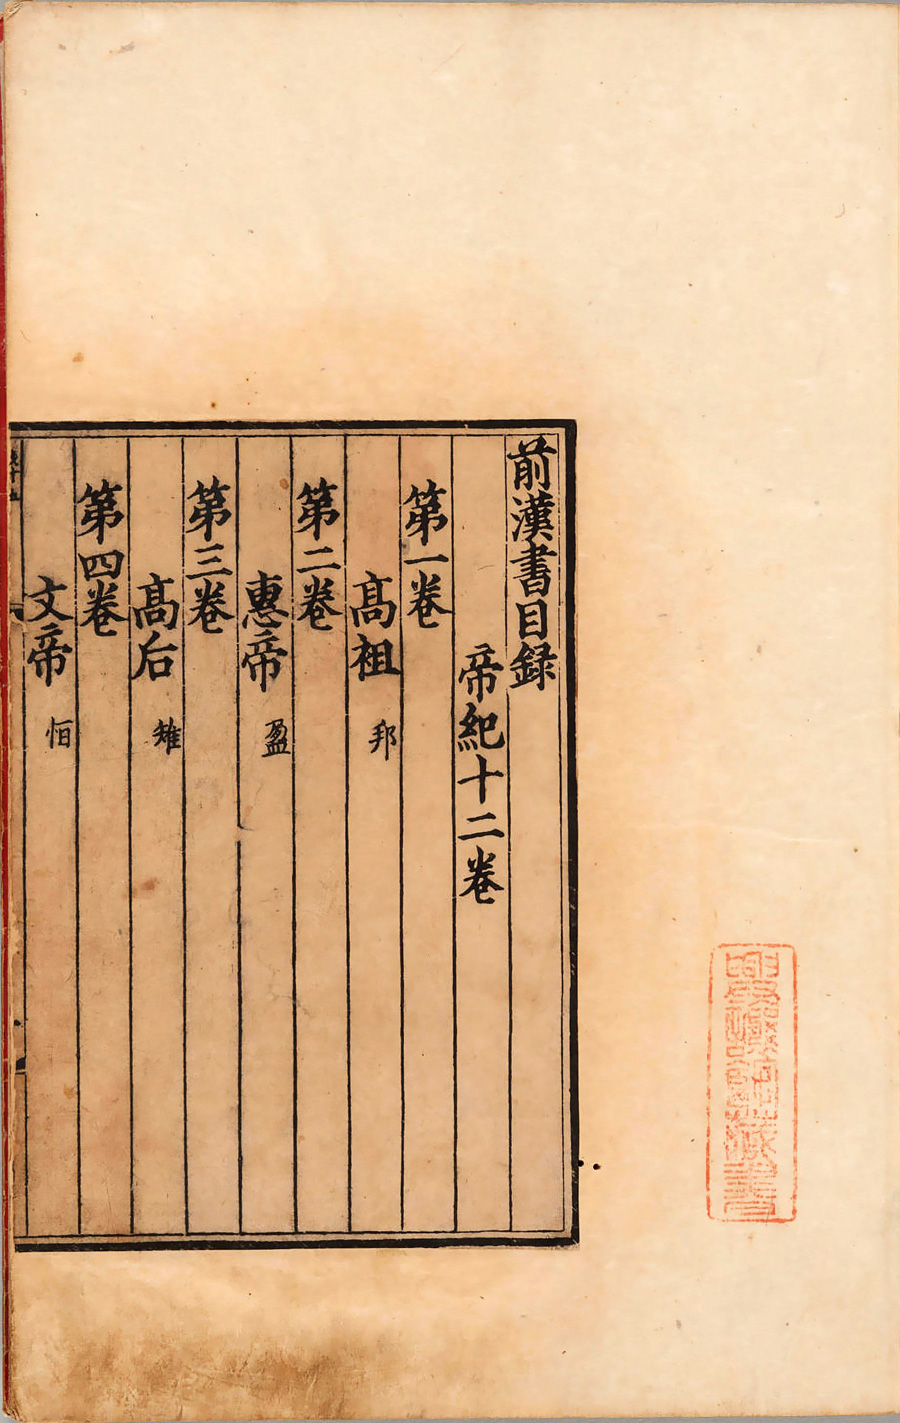 前漢書目録
帝紀十二卷
第一卷
髙祖 邦
第二卷
惠帝 盈
第三卷
髙后 雉
第四卷
文帝 恒